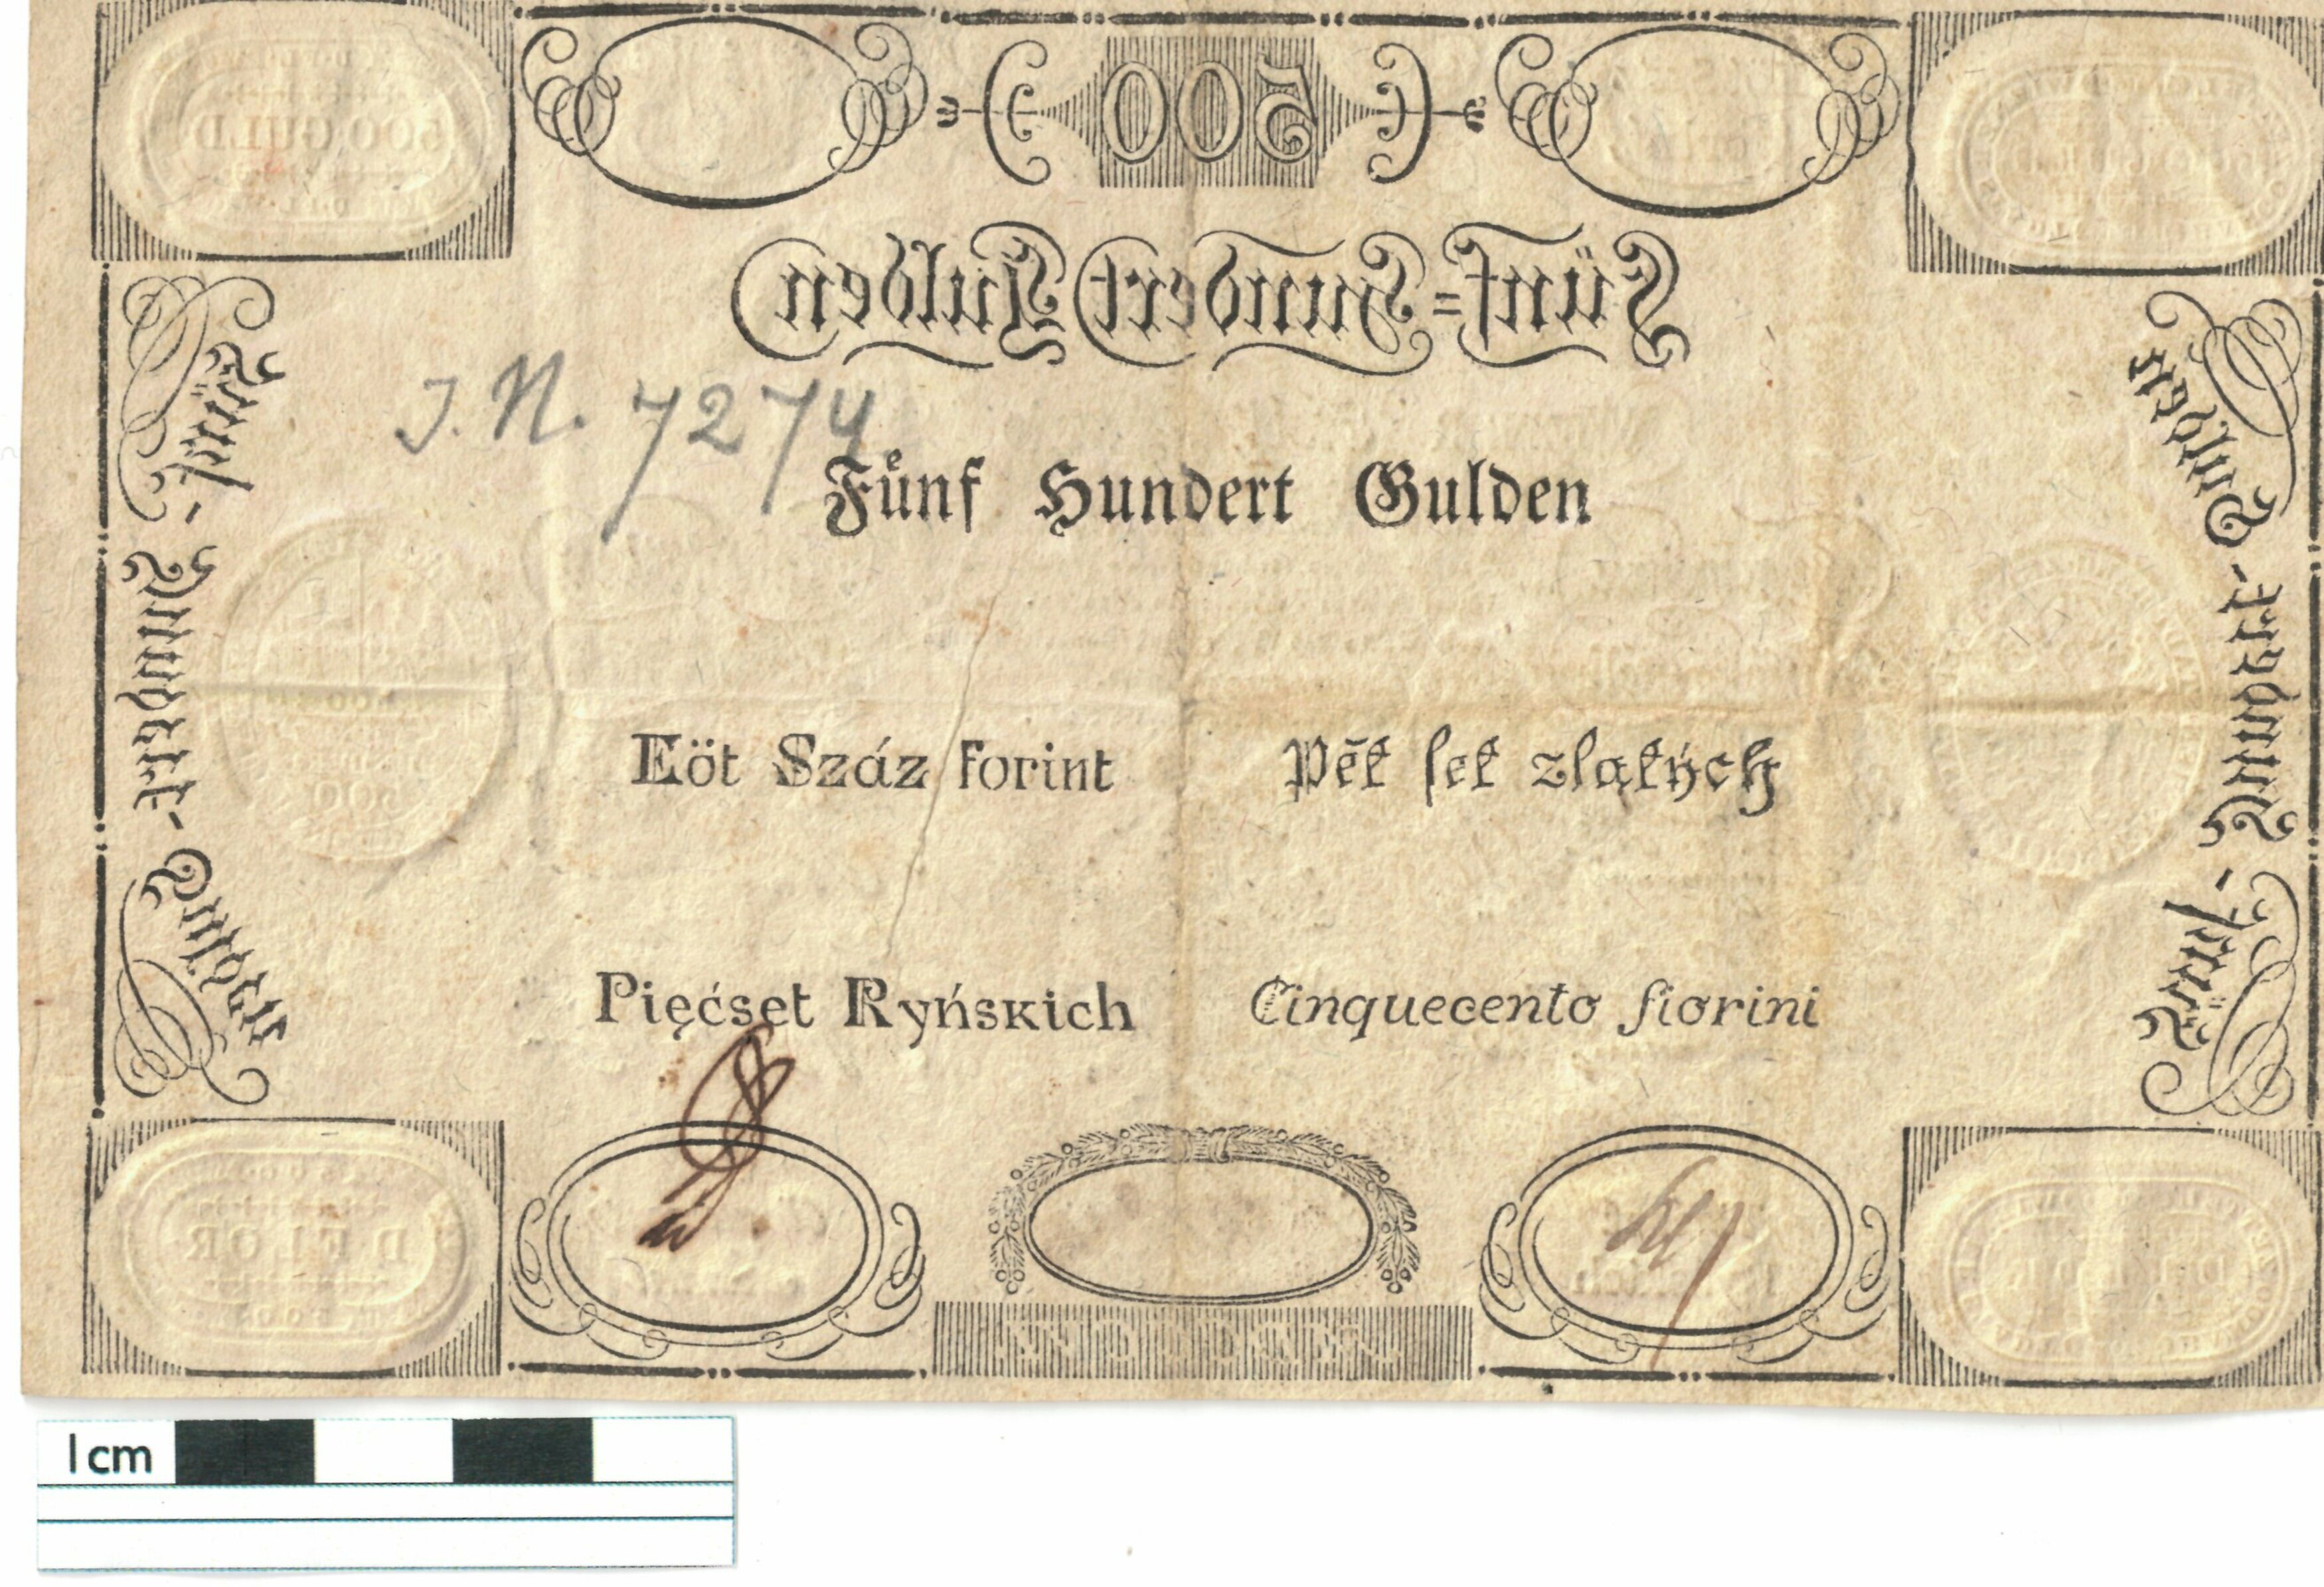 500 GULD
500
Fünf=Hundert Gulden
J. N. 7274
Fünf Hundert Gulden
Fünf-Hundert-Gulden
Fünf-Hundert-Gulden
Eöt Száz forint
Pět set zlatých
500
Pięćset Ryńskich
Cinquecento fiorini
D FLOR
1cm